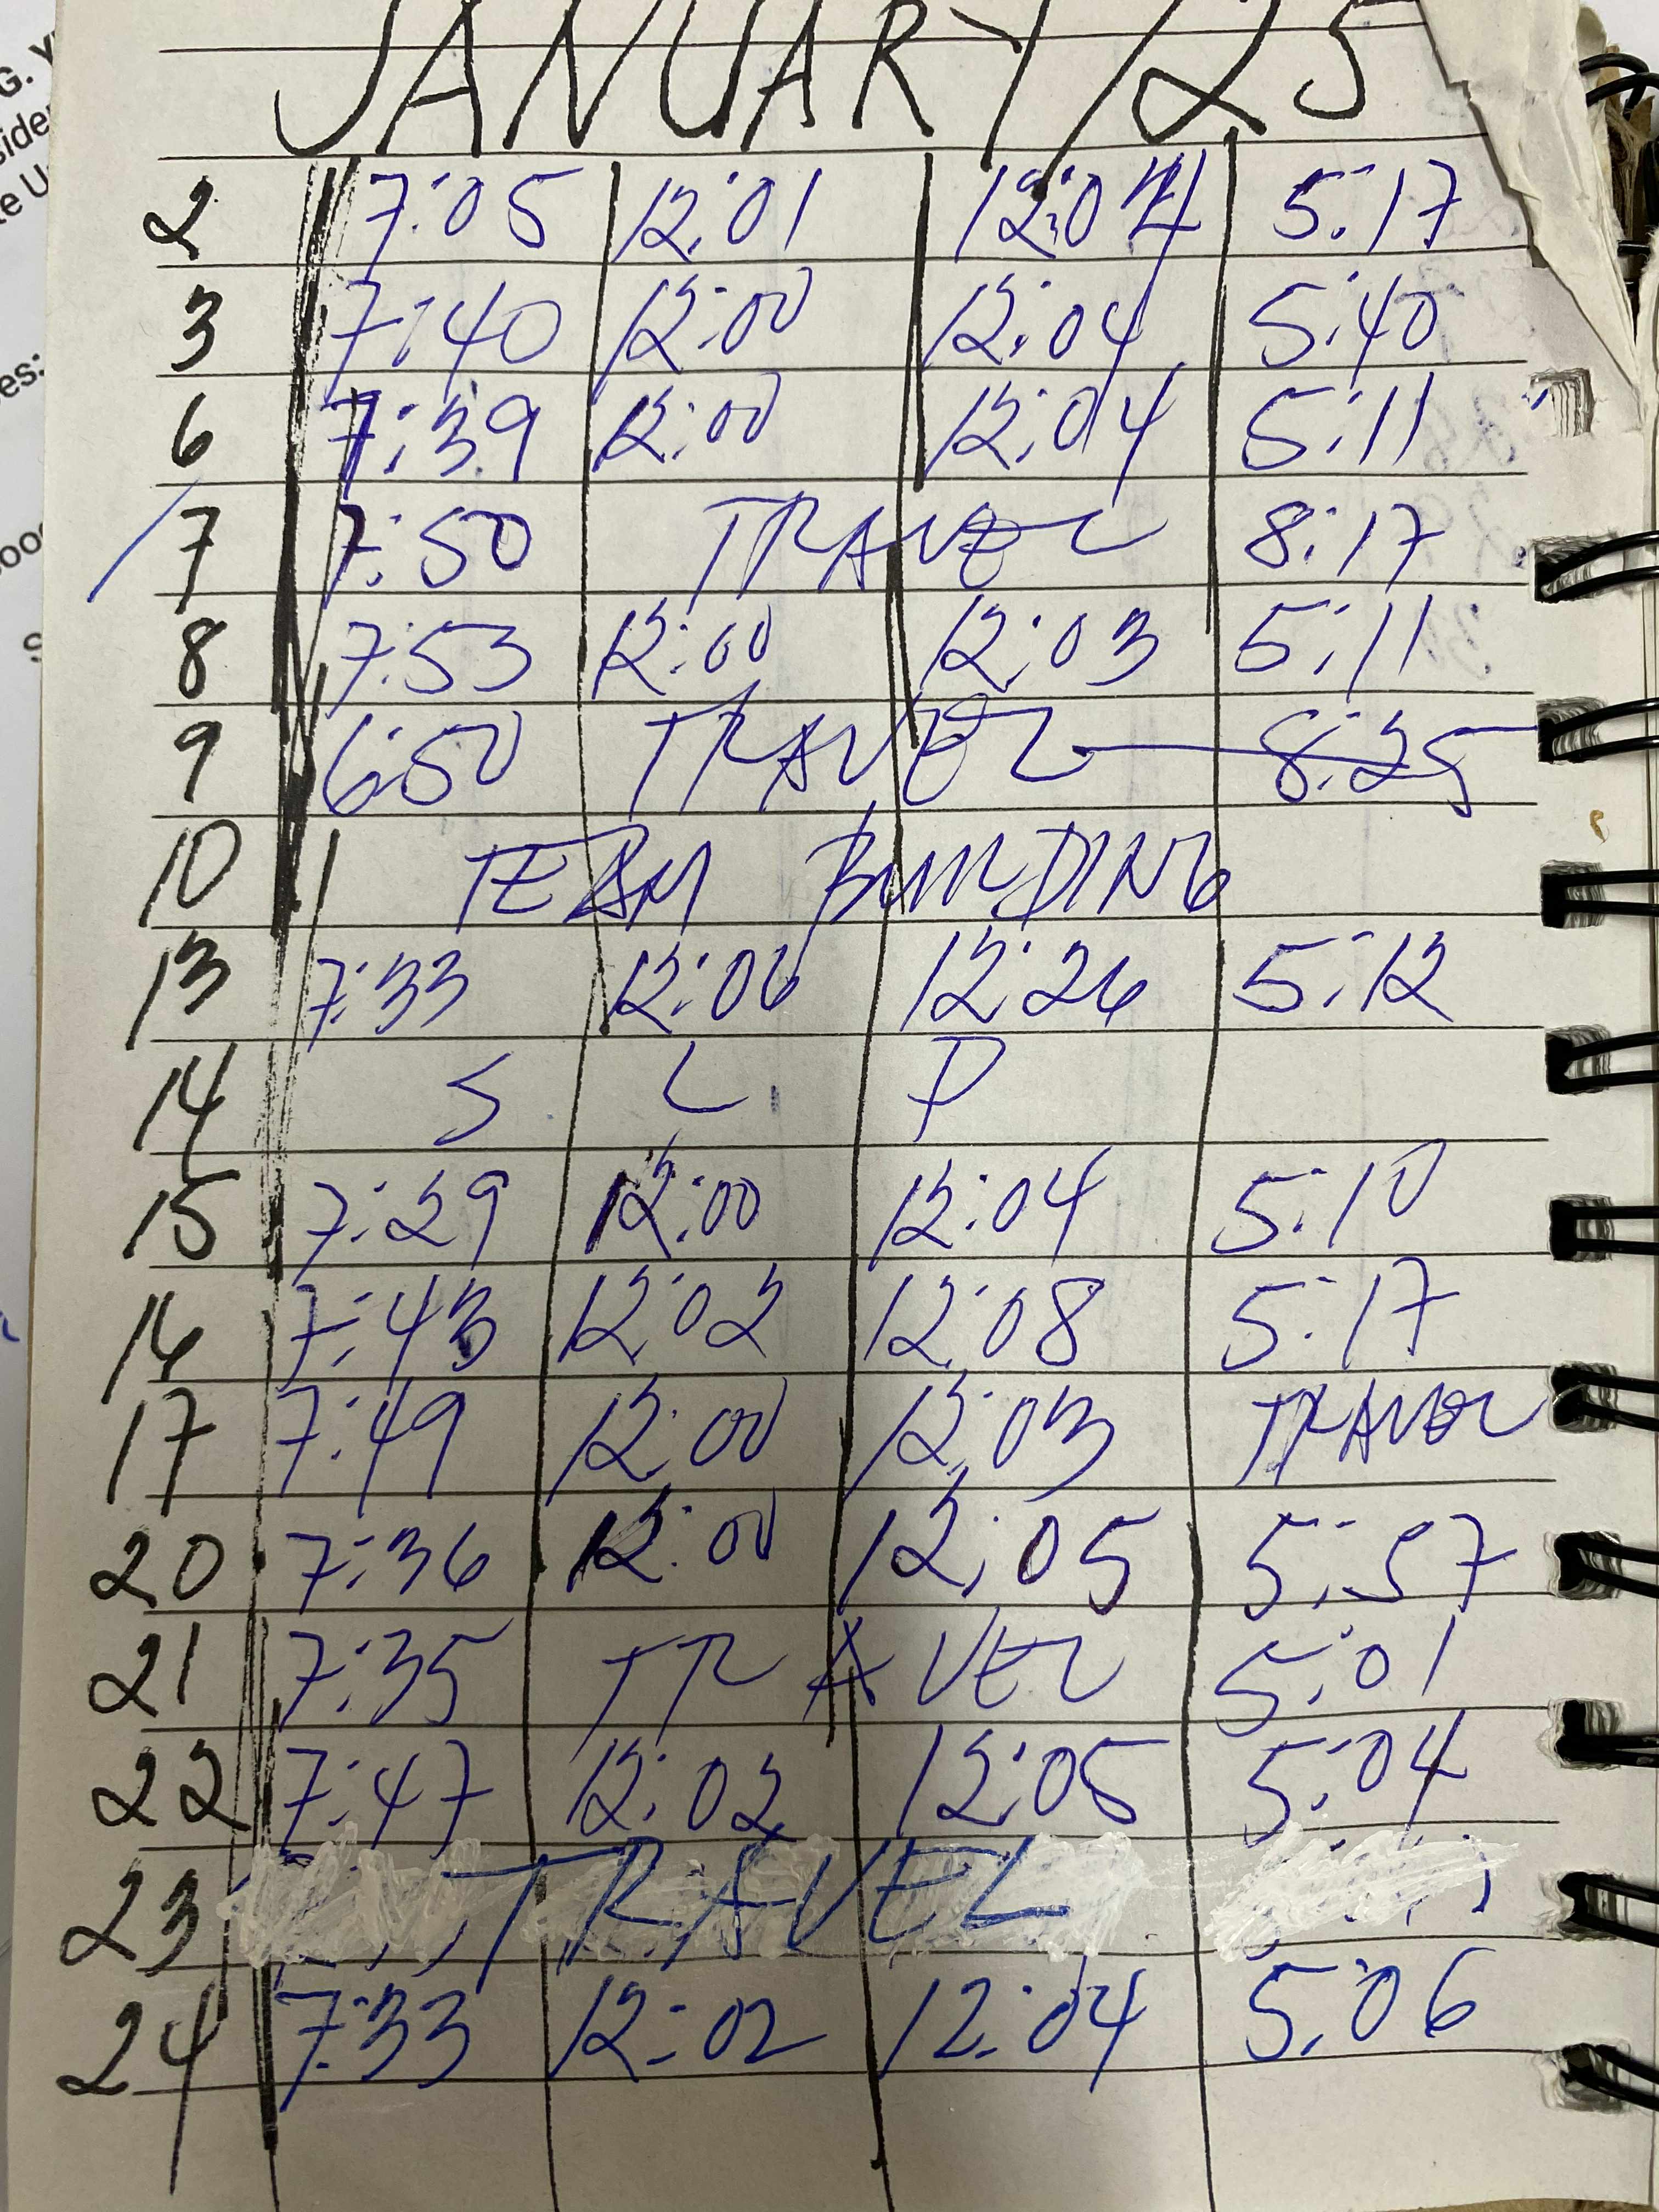 JANUARY/25
2 7:05 12:01 12:04 5:17
3 7:40 12:00 12:04 5:40
6 7:39 12:00 12:04 5:11
7 7:50 TRAVEL 8:17
8 7:53 12:00 12:03 5:11
9 6:50 TRAVEL 8:25
10 TEAM BUILDING
13 7:33 12:06 12:26 5:12
14 S L P
15 7:29 12:00 12:04 5:10
16 7:43 12:02 12:08 5:17
17 7:49 12:00 12:03 TRAVEL
20 7:36 12:00 12:05 5:57
21 7:35 TRAVEL 5:01
22 7:47 12:02 12:05 5:04
23 TRAVEL
24 7:33 12:02 12:04 5:06